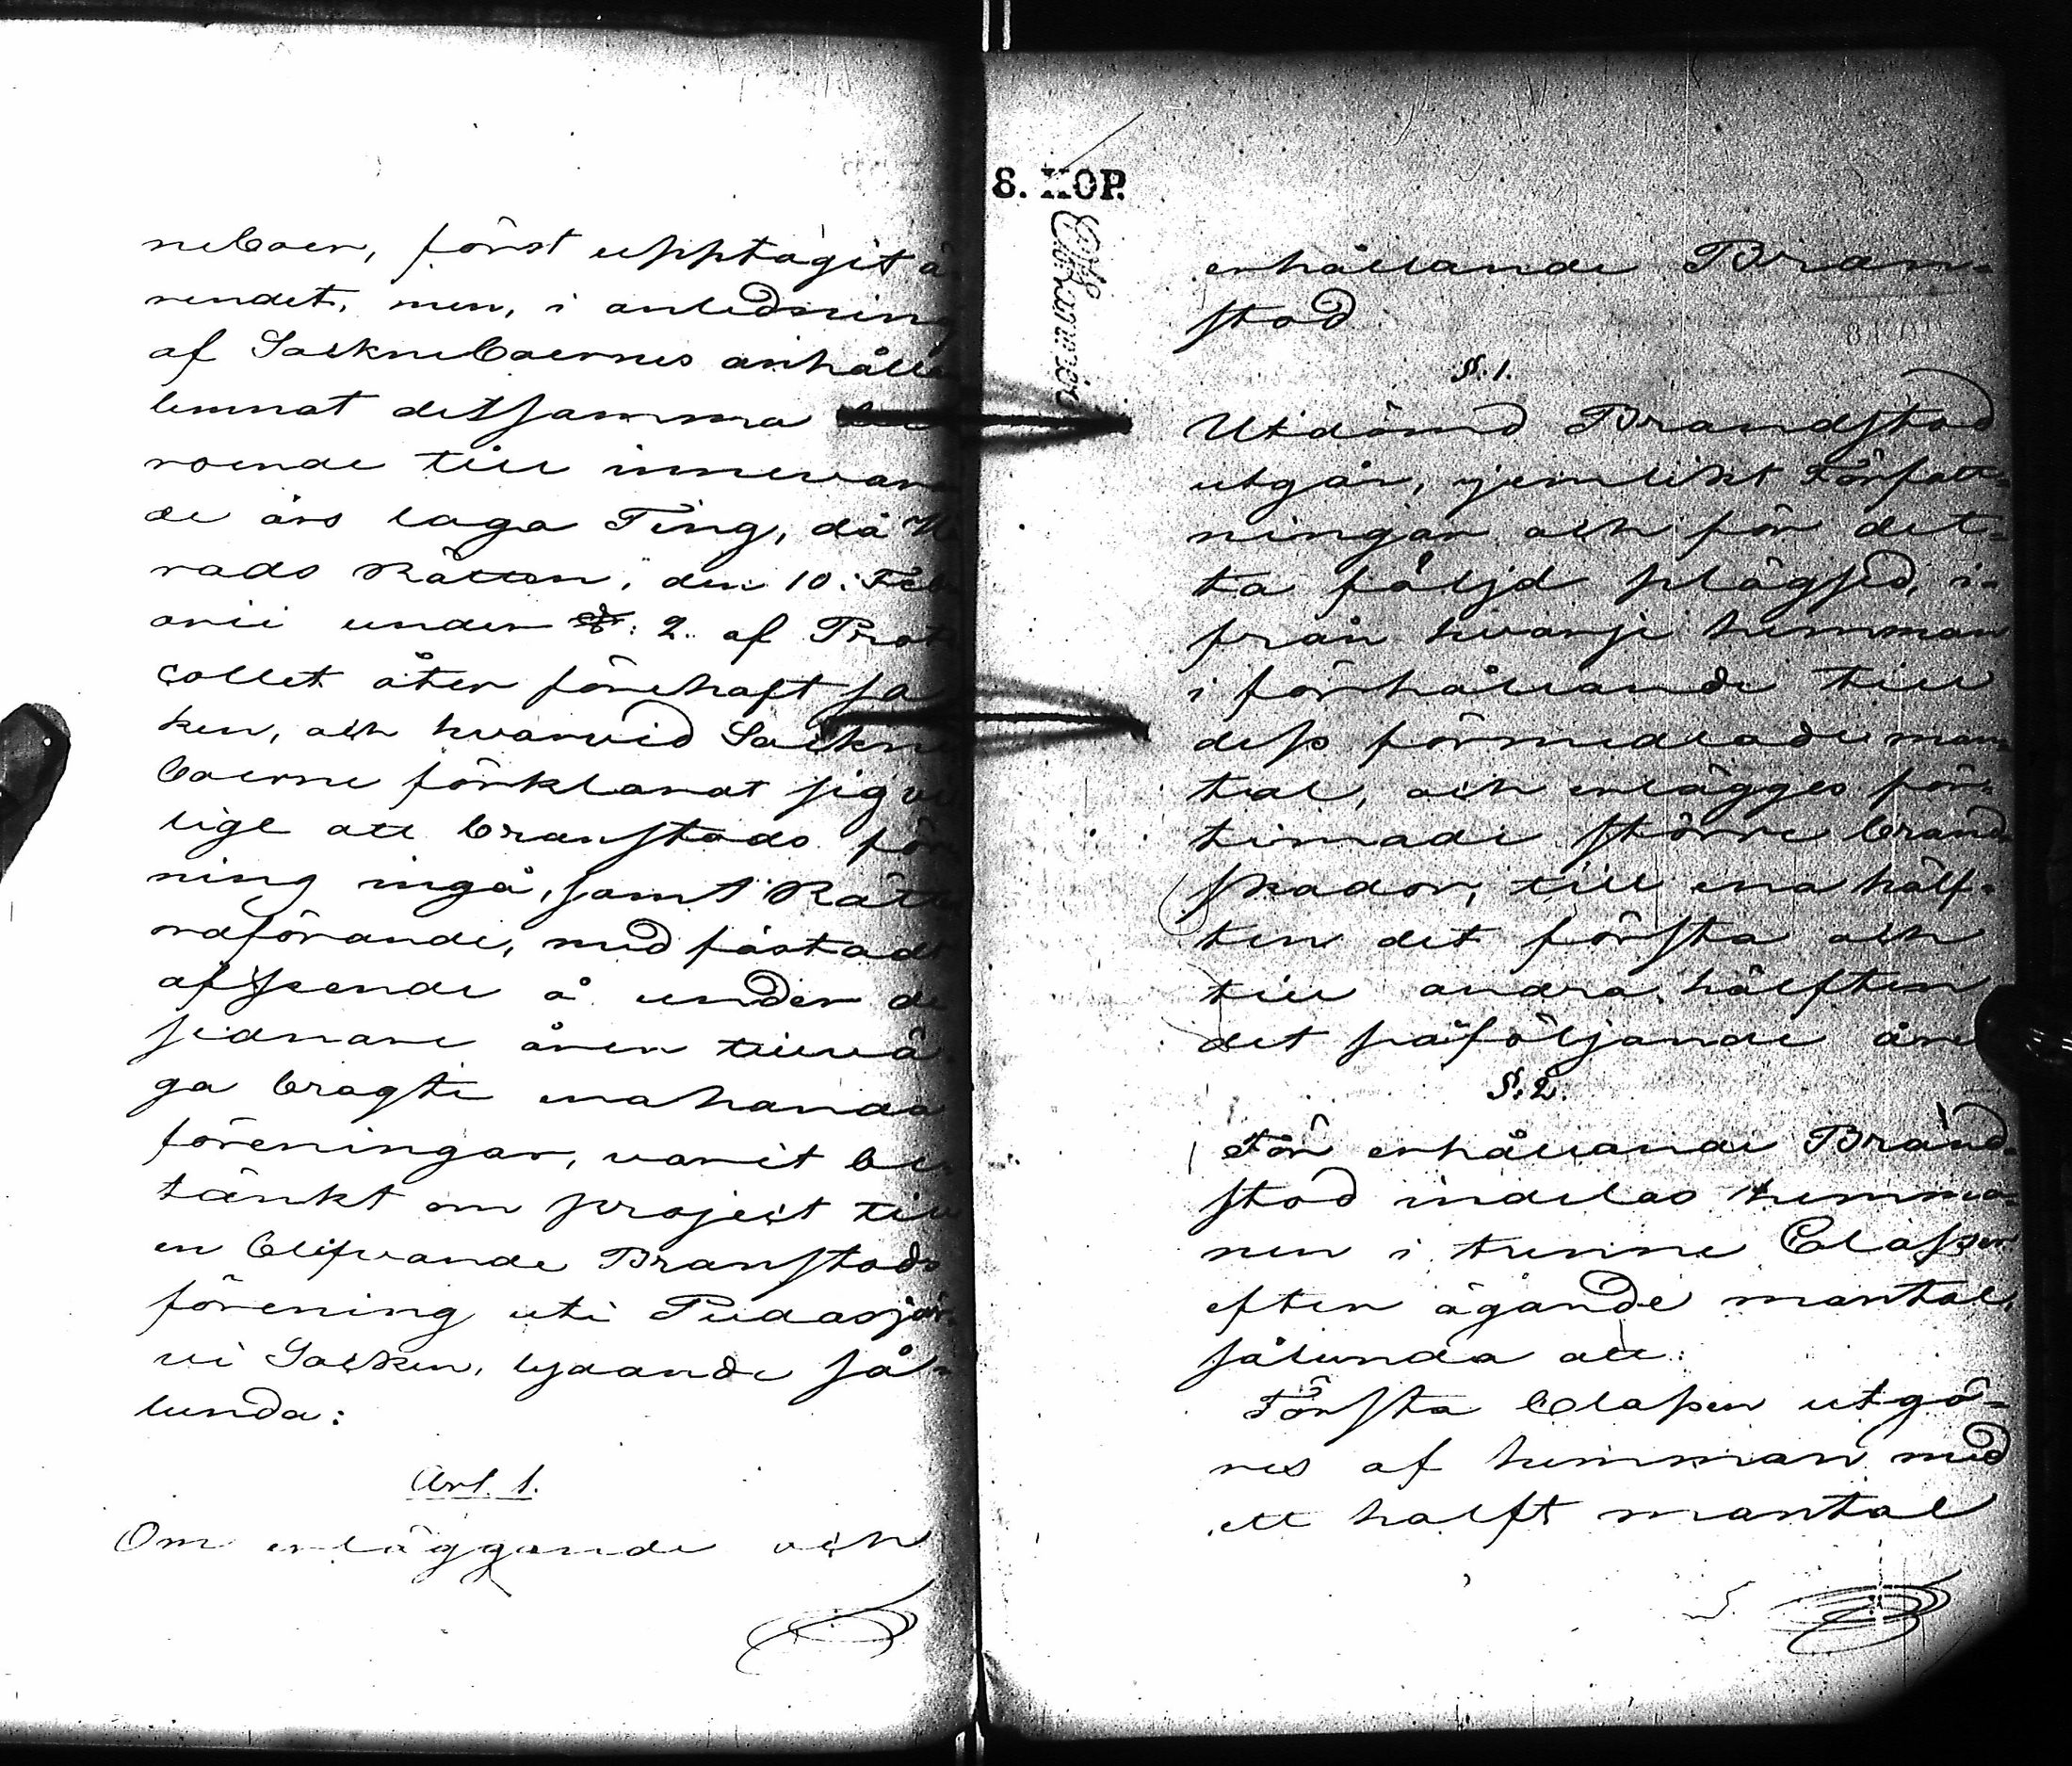 neboer, först upptagit ä
rendet, men, i anledning
af Sockneboernes anhålla
lemnat detsamma be
roende till innevaran
de års laga Ting, då Hä
rads Rätten, den 10. Febr
arii under §: 2. af Proto
collet åter förehaft sa
ken, och hvarvid Sockne
boerne förklarat sig vil
lige att branstods för
ning ingå, samt Rätte
ordförande, med fästadt
afseende å under de
sednare åren tillvä
ga bragte enahanda
föreningar, varit be
tänkt om project till
en blifvande Branstods
förening uti Pudasjär-
vi Socken, lydande så-
lunda:
Art. 1.
Om erläggande och
8. KOP.
erhållande Bran-
stod
§. 1.
Utdömd Brandstod
utgår, jemlikt Författ-
ningar och för det-
ta följd plägsed, i-
från hvarje hemman
i förhållande till
dess förmedlade man-
tal, och erlägges för
timade större brand
skador, till ena hälf-
ten det första och
till andra hälften
det påföljande året
§. 2.
För erhållande Brand-
stod indelas hemma-
nen i trenne Classer
efter ägande mantal,
sålunda att:
Första Classen utgö-
res af hemman med
ett halft mantal